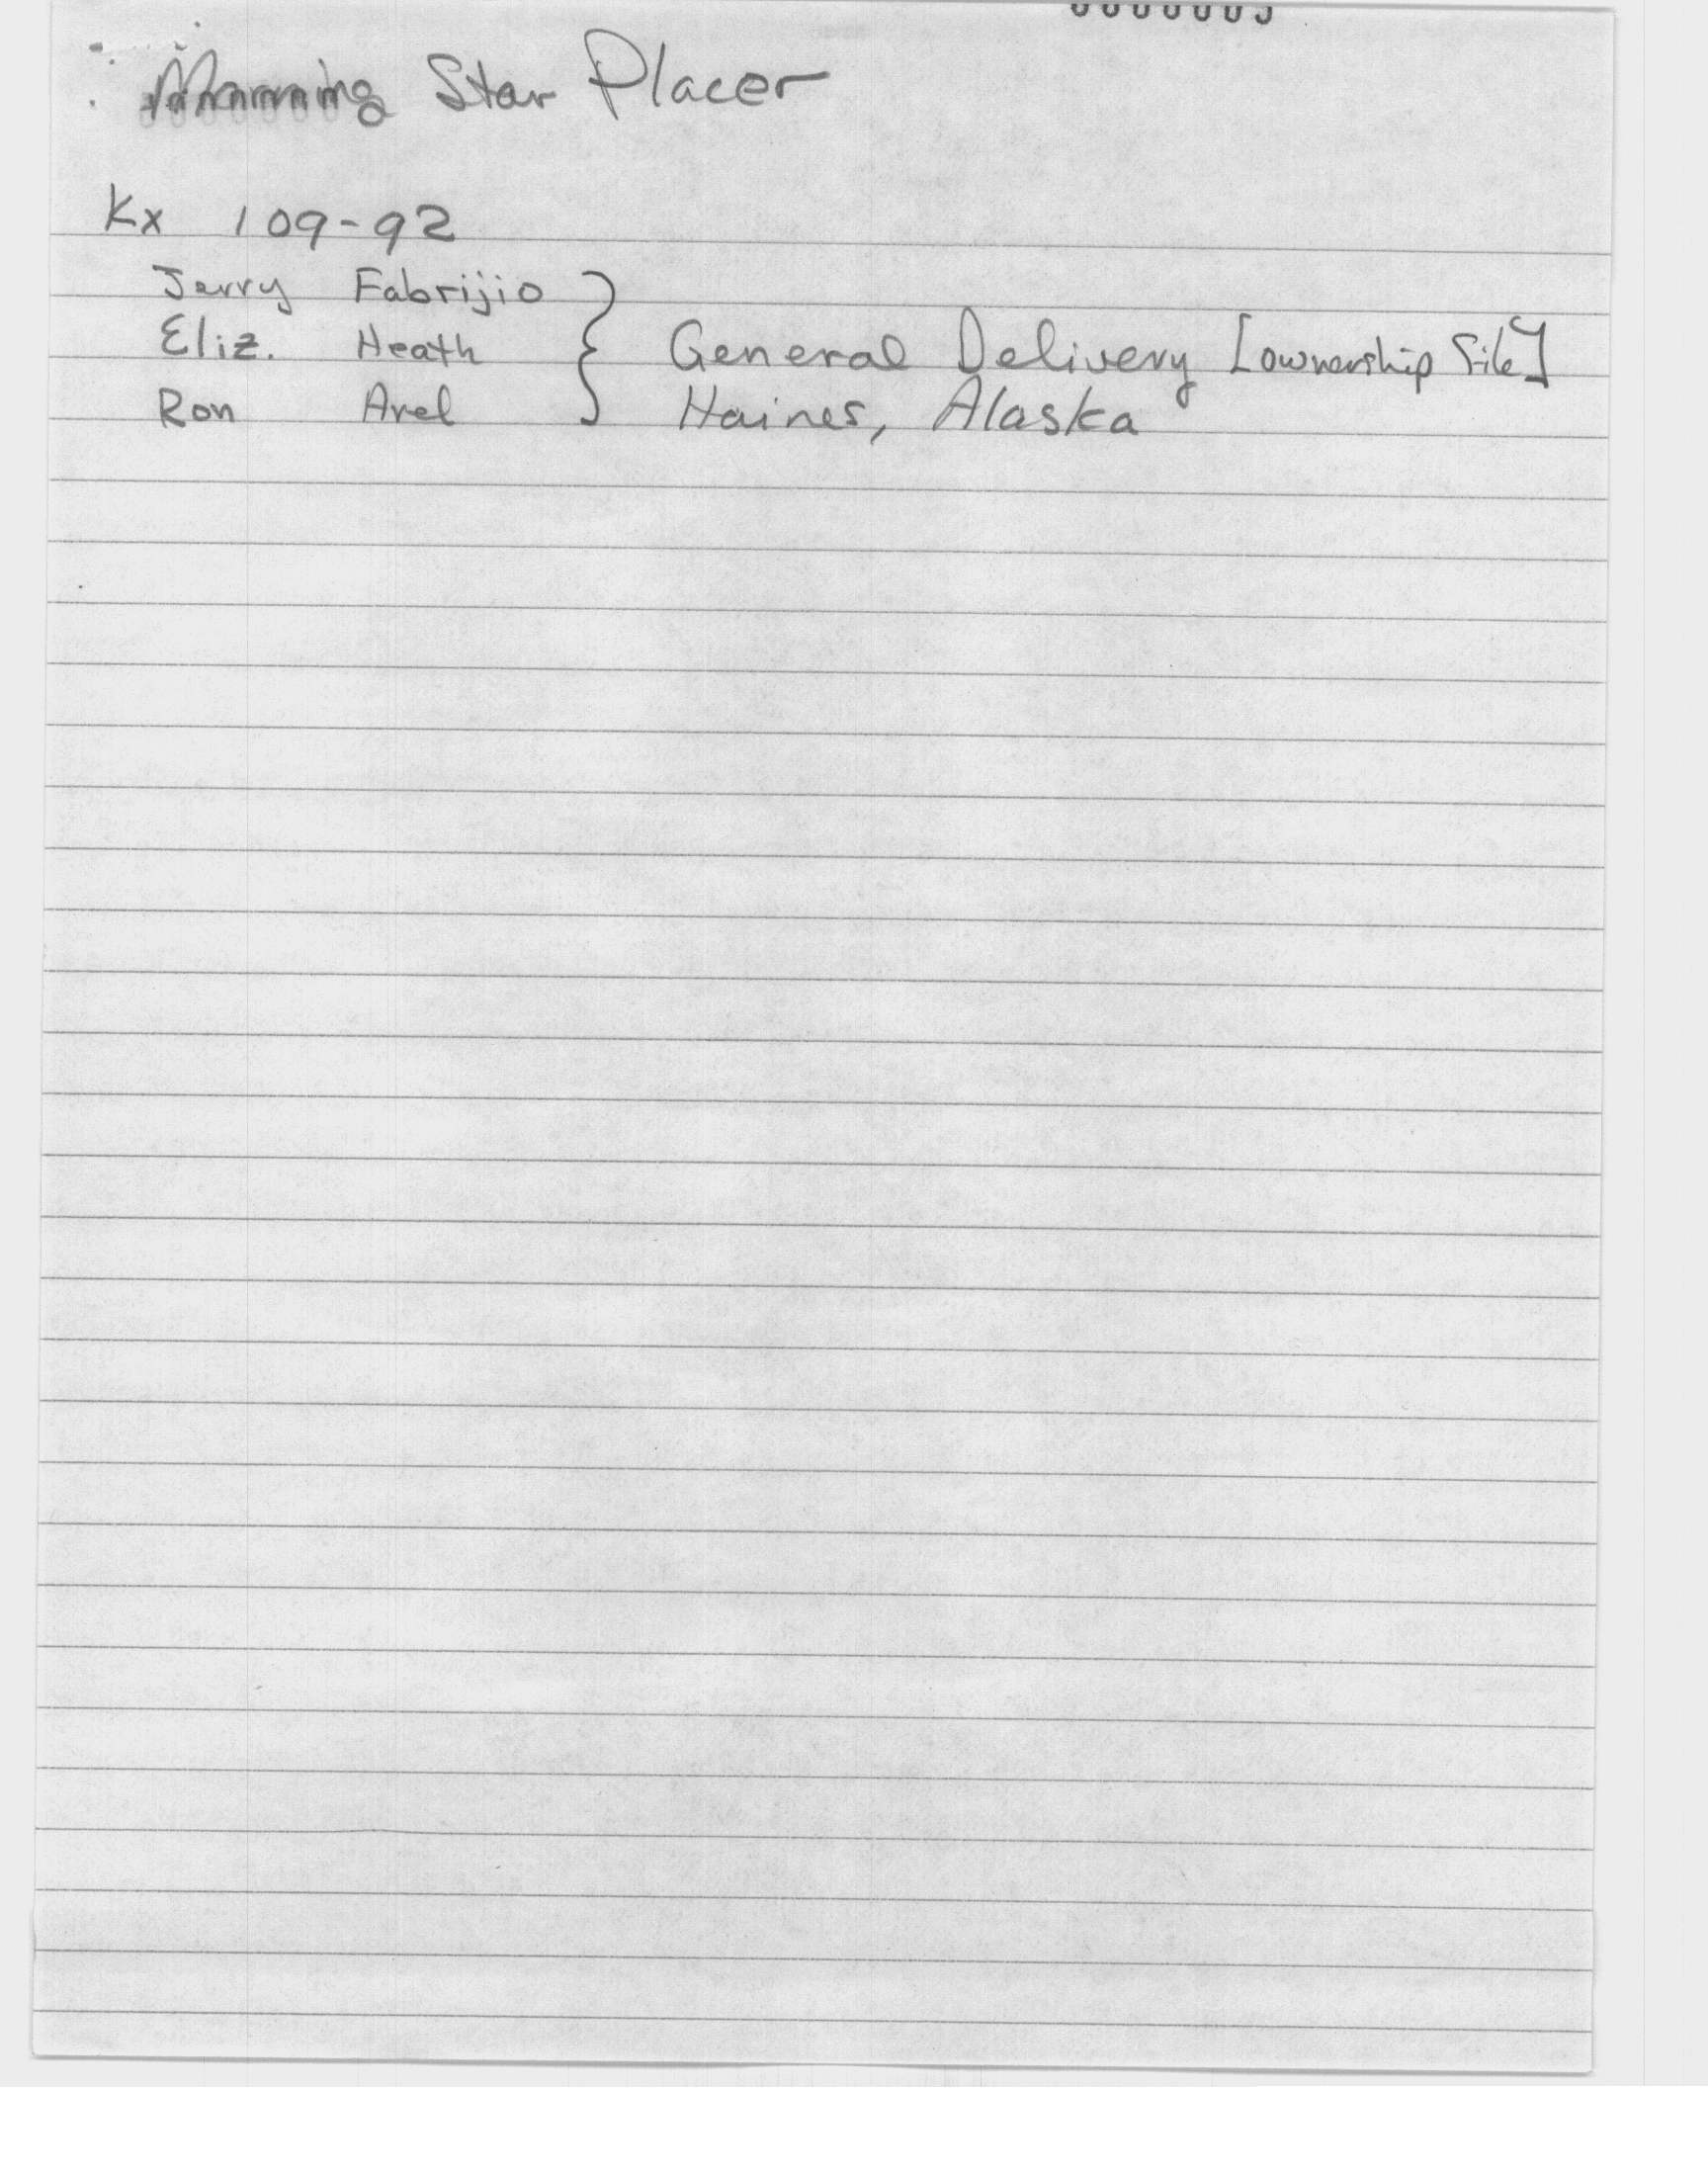 Morning Star Placer
Kx 109-92
Jerry Fabrijio
Eliz. Heath } General Delivery [ownership file]
Ron Avel Haines, Alaska